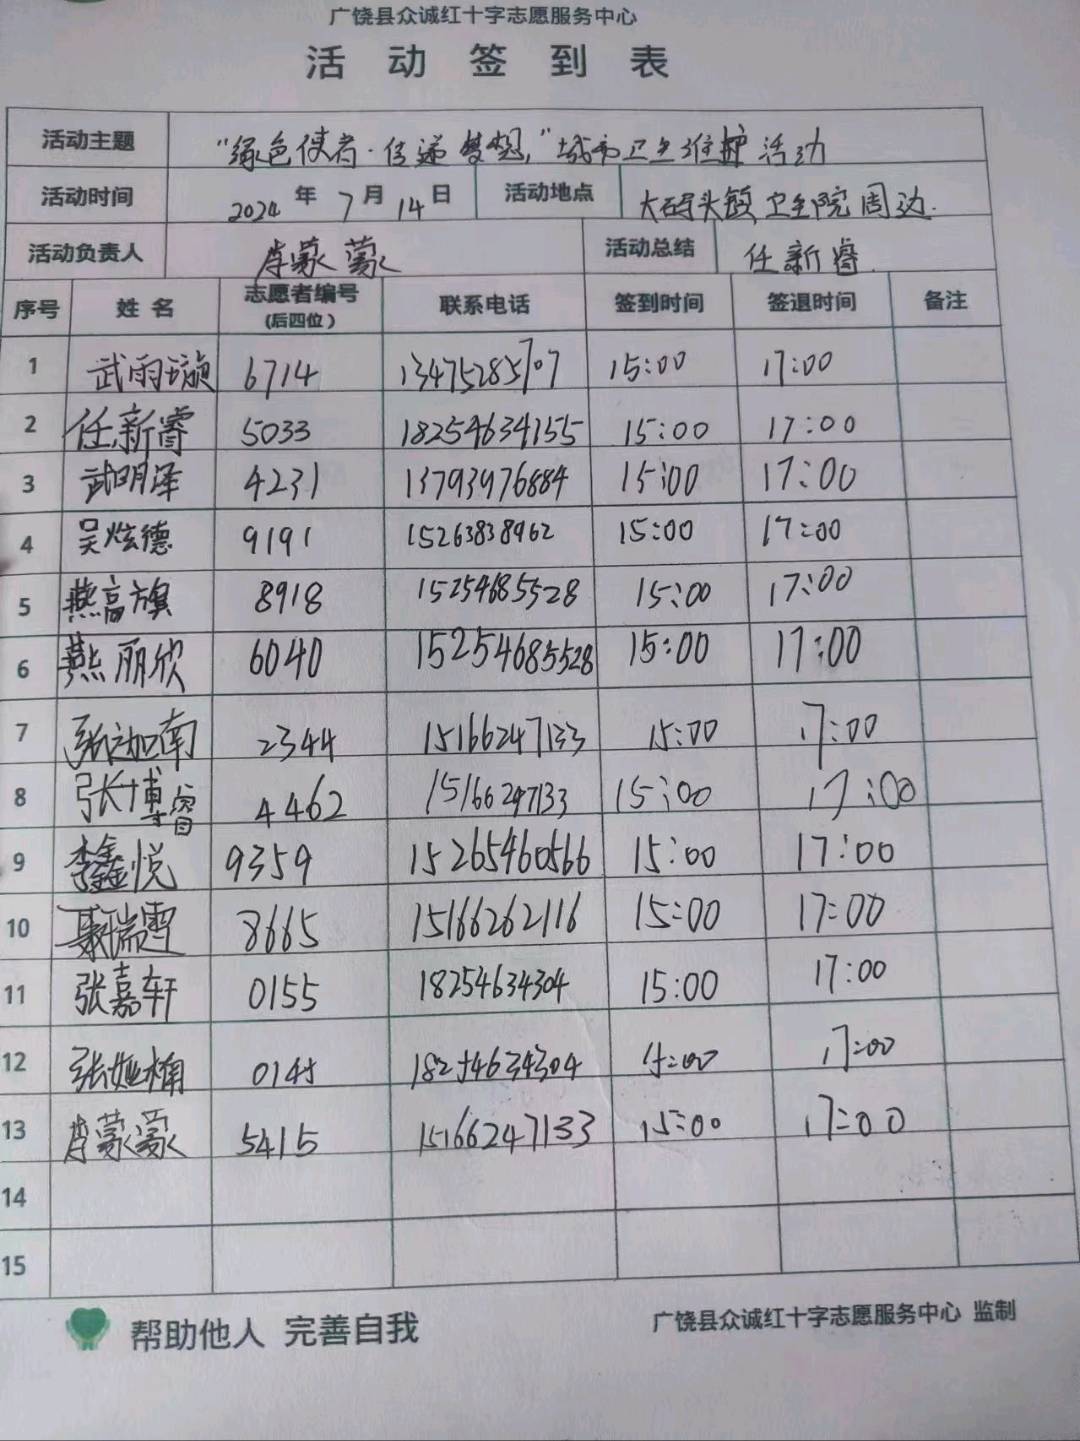 广饶县众诚红十字志愿服务中心
活动签到表
活动主题 "绿色使者·传递梦想"城市卫生维护活动
活动时间 2024年7月14日 活动地点 大码头镇卫生院周边.
活动负责人 肖蒙蒙 活动总结 任新睿.
序号 姓名 志愿者编号 (后四位) 联系电话 签到时间 签退时间 备注
1 武雨璇 6714 13475285707 15:00 17:00
2 任新睿 5033 18254634155 15:00 17:00
3 武明泽 4231 13793976884 15:00 17:00
4 吴炫德 9191 15263838962 15:00 17:00
5 燕高旗 8918 15254685528 15:00 17:00
6 燕丽欣 6040 15254685528 15:00 17:00
7 张迦南 2344 15166247133 15:00 17:00
8 张博睿 4462 15166247133 15:00 17:00
9 李鑫悦 9359 15265460566 15:00 17:00
10 瑞雪 8665 15166262116 15:00 17:00
11 张嘉轩 0155 18254634304 15:00 17:00
12 张娅楠 0145 18254634304 15:00 17:00
13 肖蒙蒙 5415 15166247133 15:00 17:00
14
15
帮助他人 完善自我
广饶县众诚红十字志愿服务中心 监制